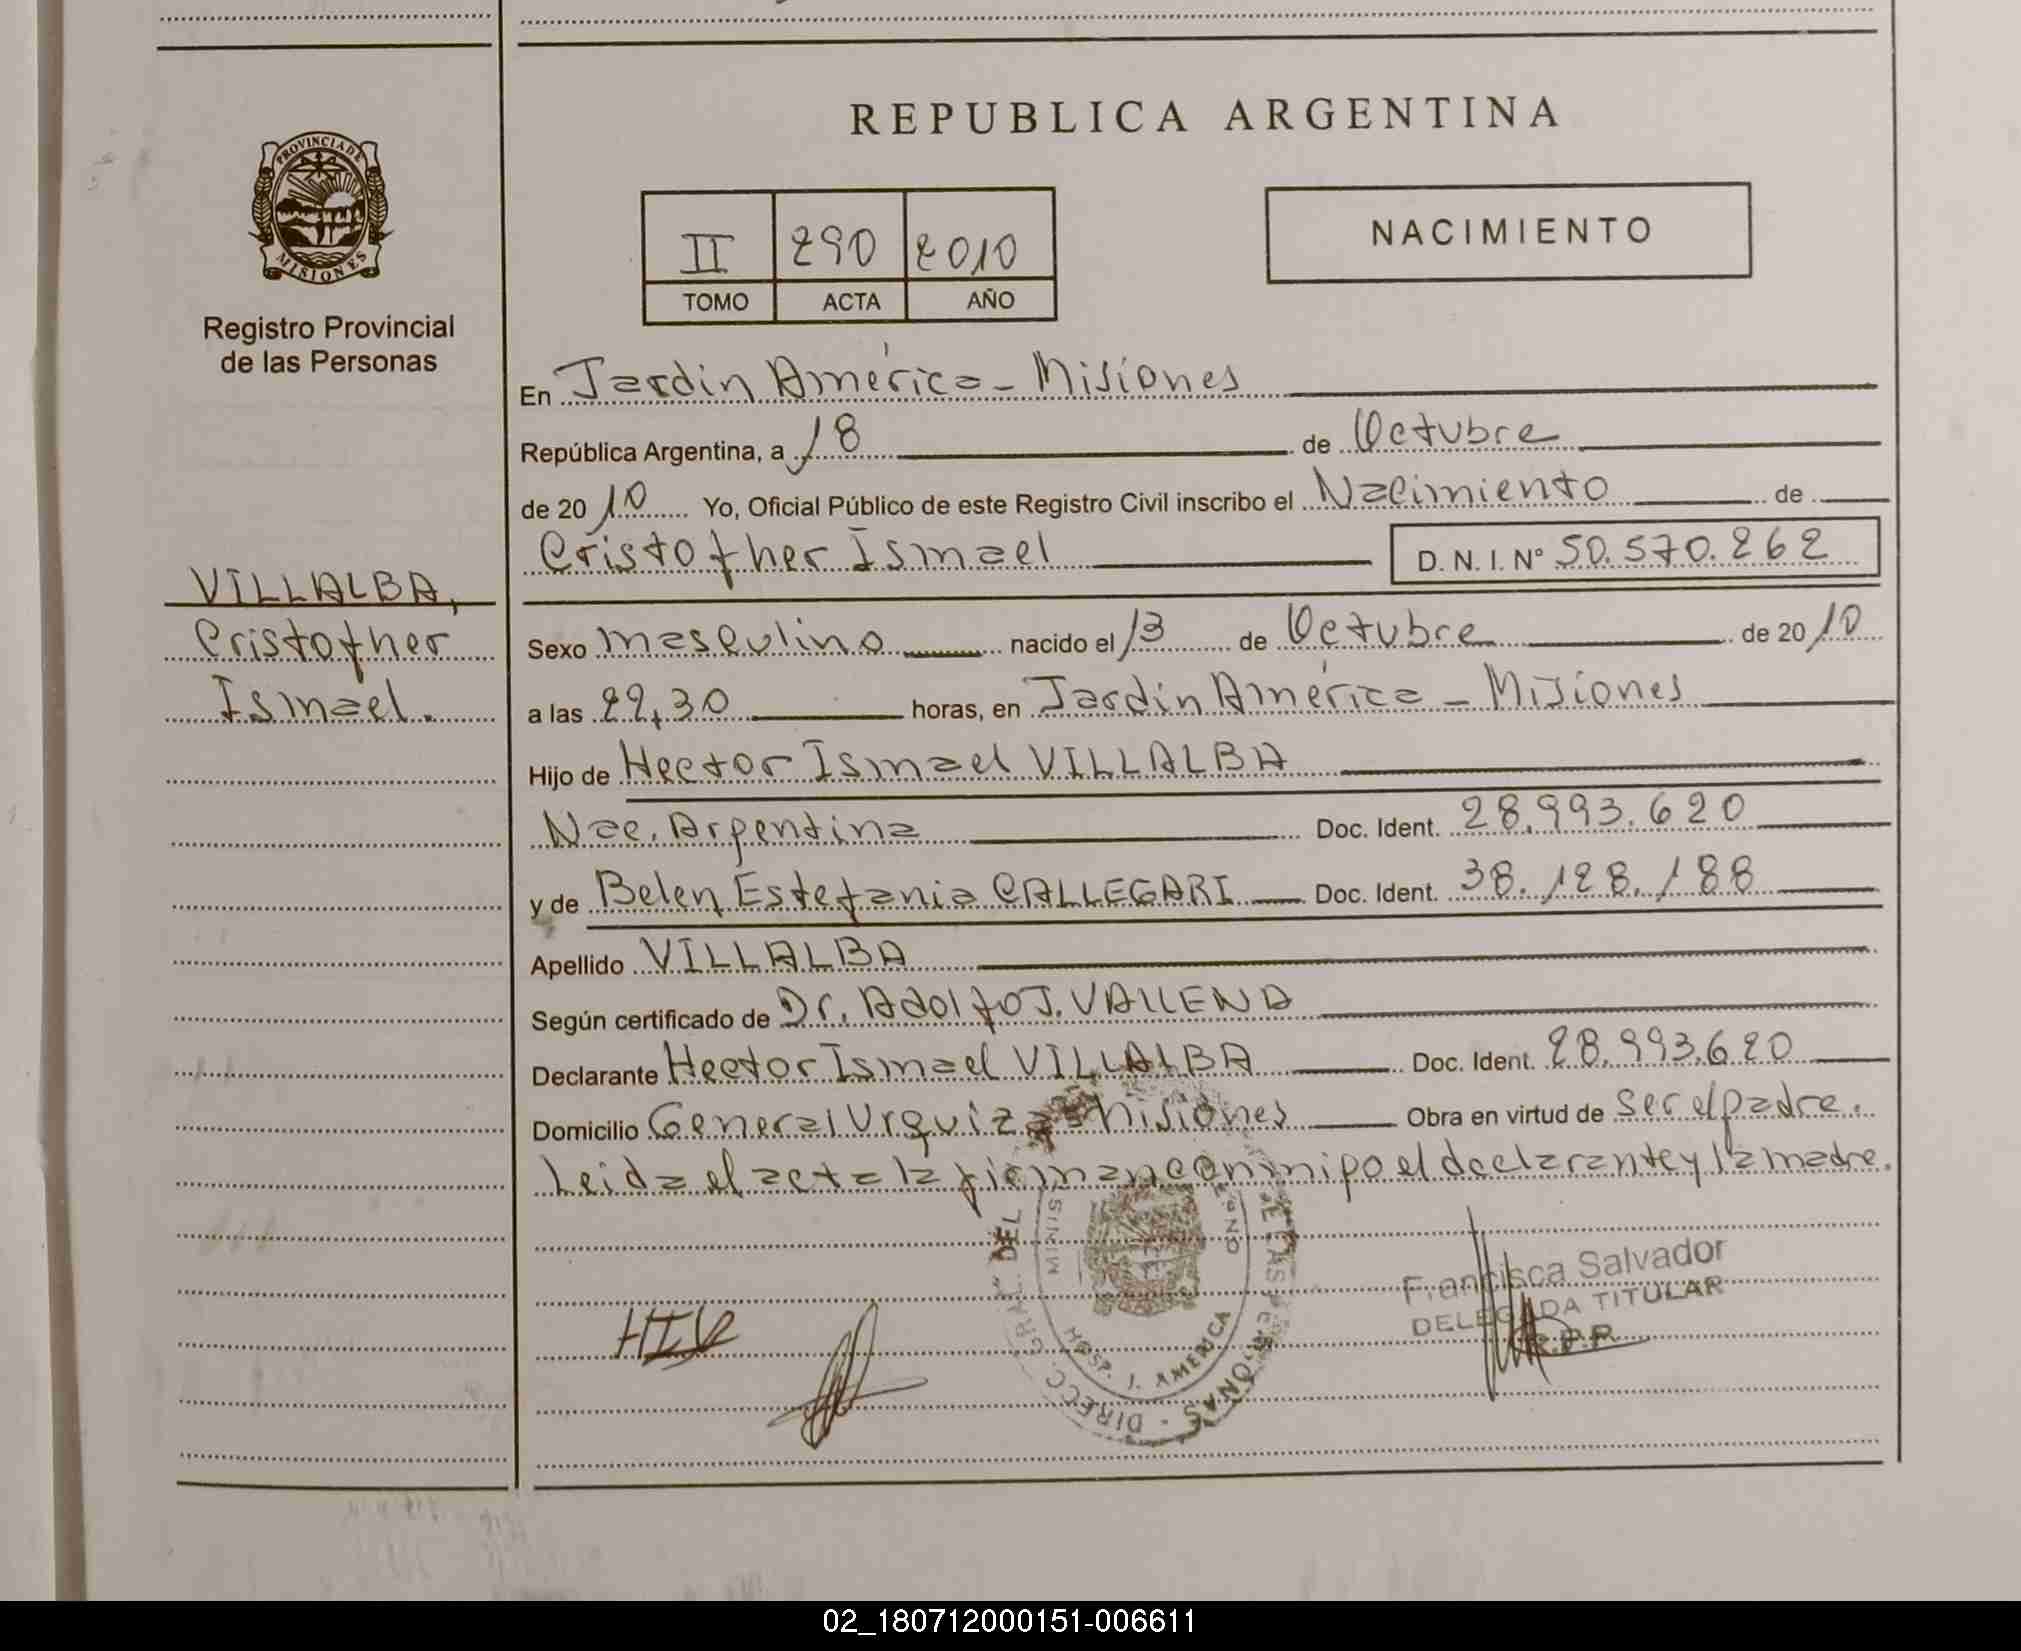 REPUBLICA ARGENTINA
PROVINCIA DE
MISIONES
Registro Provincial
de las Personas
II 290 2010
TOMO ACTA AÑO
NACIMIENTO
En Jardín América - Misiones
República Argentina, a 18 de Octubre
de 2010 Yo, Oficial Público de este Registro Civil inscribo el Nacimiento de
Cristofher Ismael D. N. I. Nº 50.570.262
VILLALBA,
Cristofher
Ismael.
Sexo masculino nacido el 13 de Octubre de 2010
a las 22,30 horas, en Jardín América - Misiones
Hijo de Hector Ismael VILLALBA
Nac. Argentina Doc. Ident. 28.993.620
y de Belen Estefania CALLEGARI Doc. Ident. 38.128.188
Apellido VILLALBA
Según certificado de Dr. Adolfo J. VALLENA
Declarante Hector Ismael VILLALBA Doc. Ident. 28.993.620
Domicilio General Urquiza - Misiones Obra en virtud de ser el padre.
Leida el acta la firman conmigo el declarante y la madre.
HIV
DIRECC. GRAL. DEL DE LAS PERSONAS
MINIS
HOSP. J. AMERICA
Francisca Salvador
DELEGADA TITULAR
R.P.P.
02_180712000151-006611